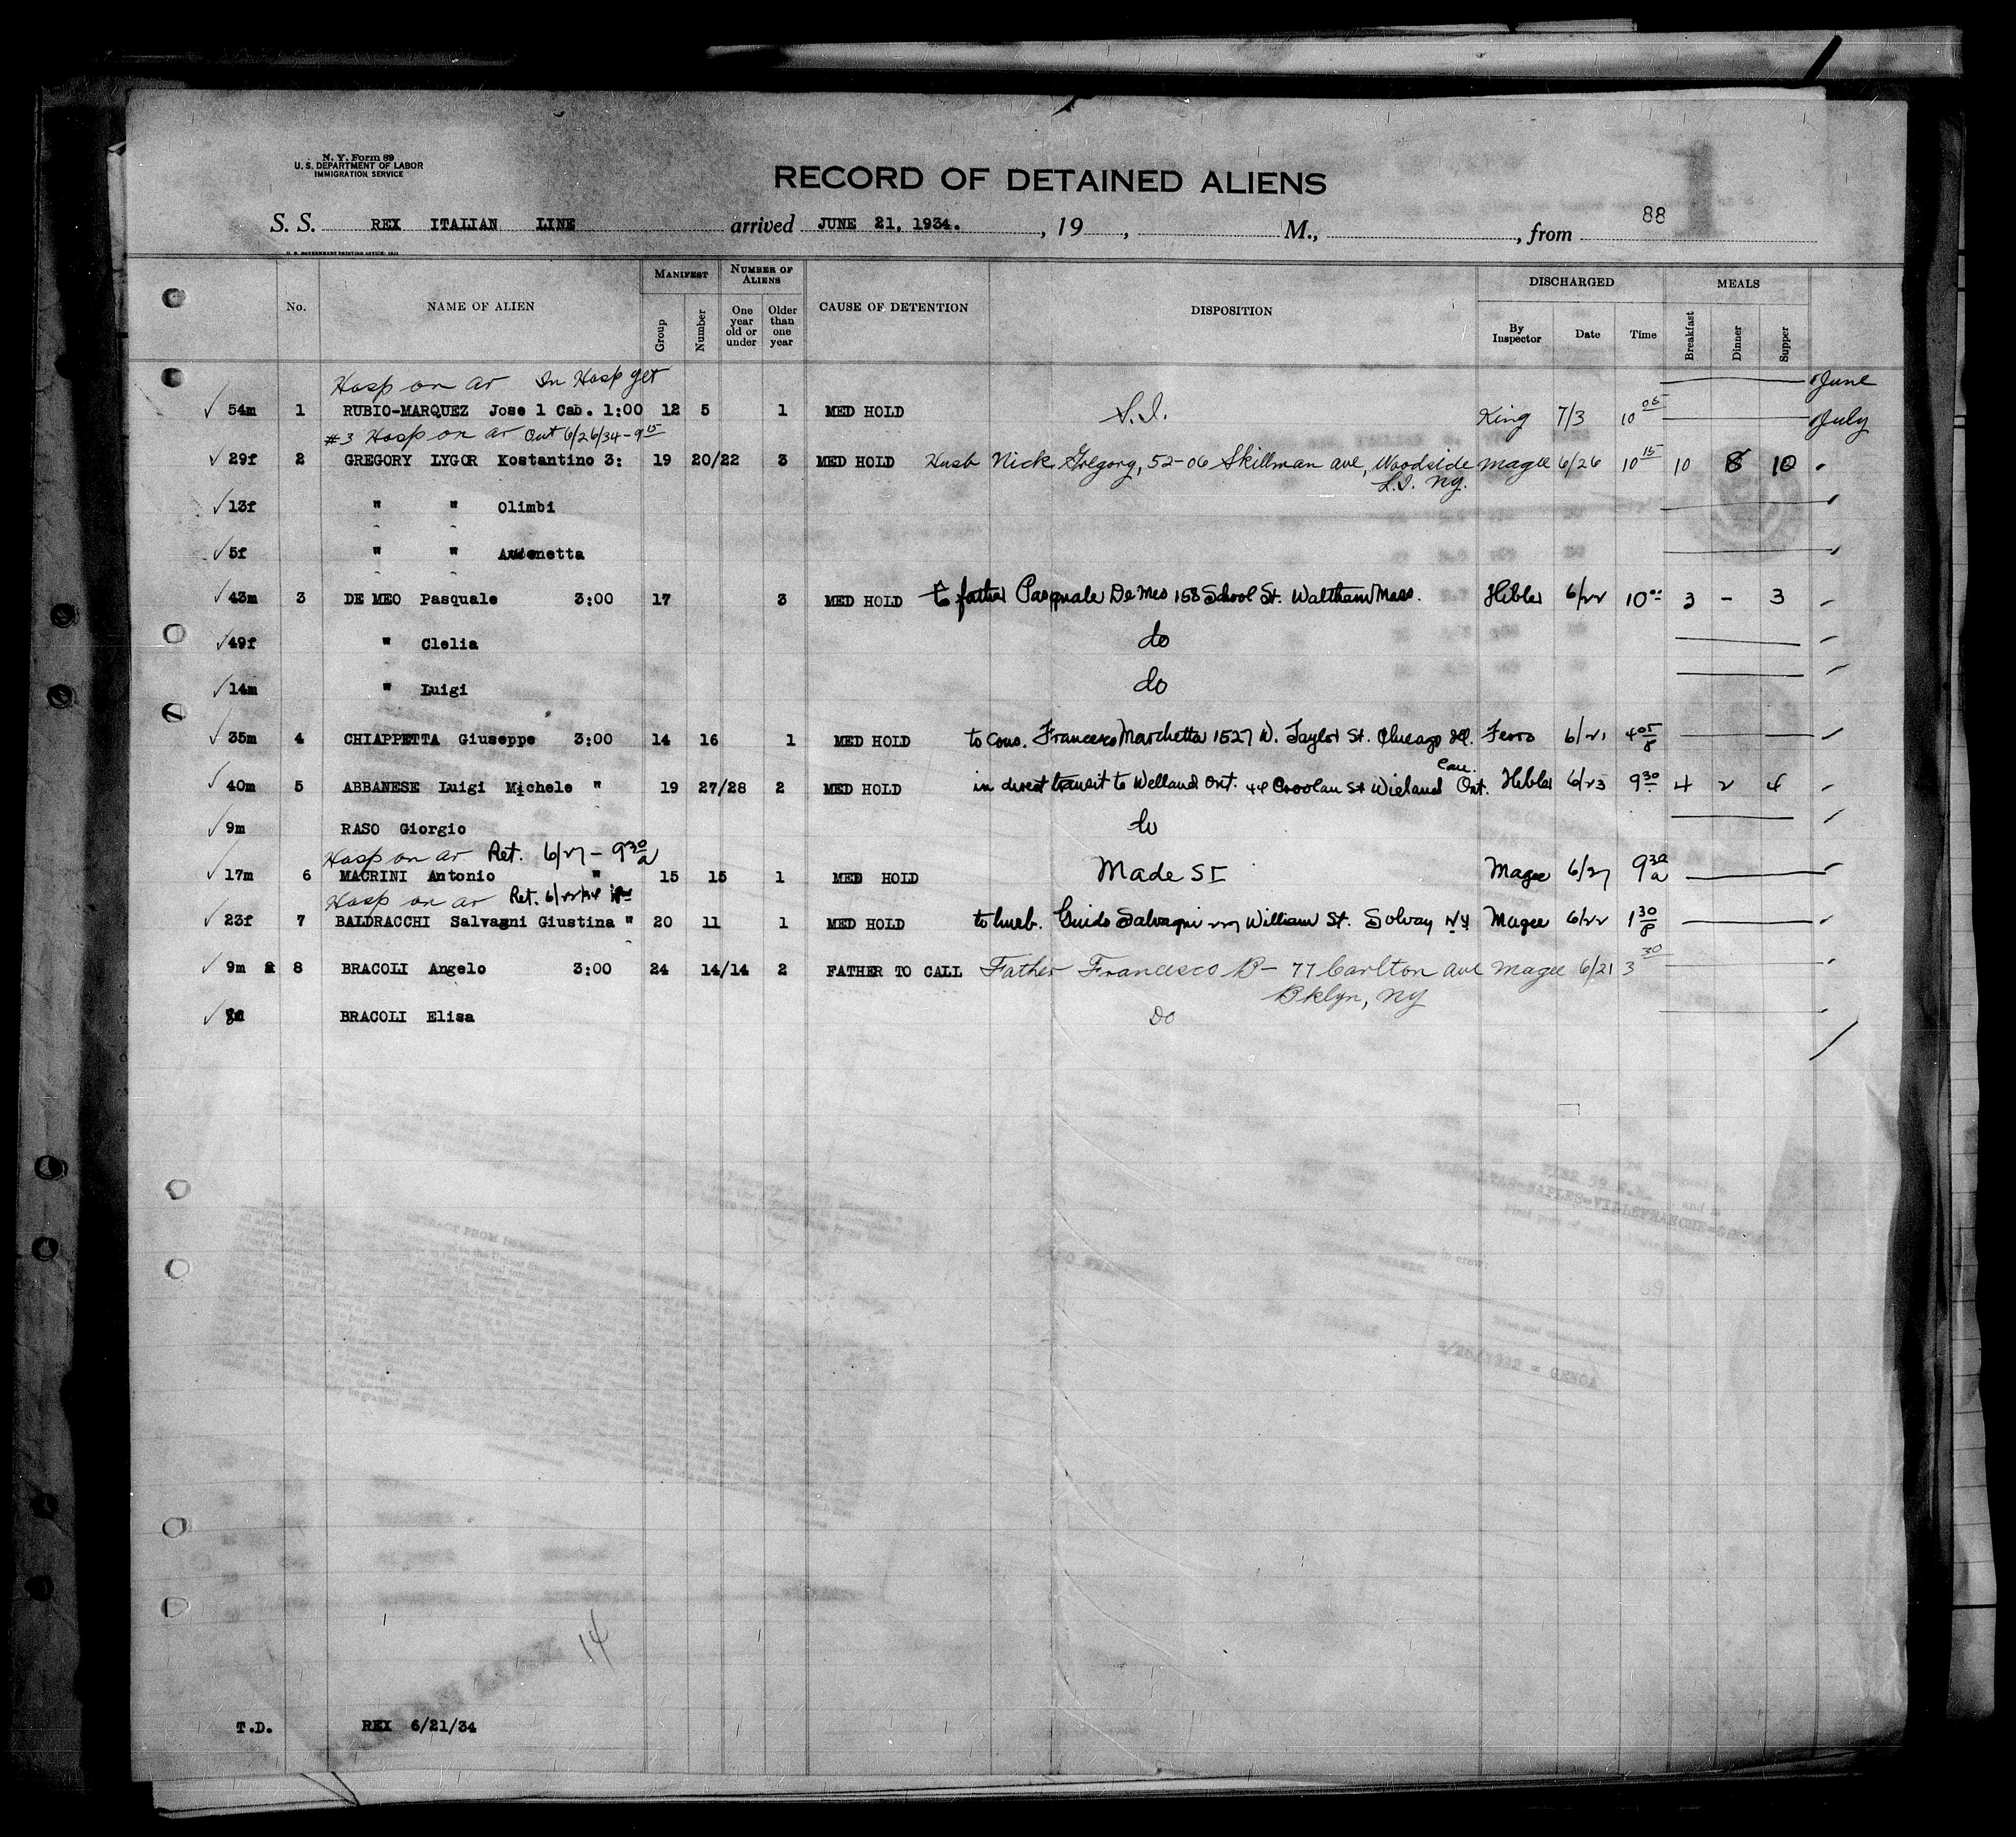 N. Y. Form 89
U. S. DEPARTMENT OF LABOR
IMMIGRATION SERVICE
RECORD OF DETAINED ALIENS
1
88
S. S. REX ITALIAN LINE arrived JUNE 21, 1934. , 19 , M., , from
U. S. GOVERNMENT PRINTING OFFICE: 1931
No. NAME OF ALIEN MANIFEST Group Number NUMBER OF ALIENS One year old or under Older than one year CAUSE OF DETENTION DISPOSITION DISCHARGED By Inspector Date Time MEALS Breakfast Dinner Supper
Hosp on ar In Hosp yet June
54m 1 RUBIO-MARQUEZ Jose 1 Cab. 1:00 12 5 1 MED HOLD S.I. King 7/3 10 05 July
#3 Hosp on ar Out 6/26/34 - 9 15
29f 2 GREGORY LYGOR Kostantino 3: 19 20/22 3 MED HOLD Husb Nick Gregory, 52-06 Skillman ave, Woodside Magee 6/26 10 15 10 8 10
L.I. NY.
13f " " Olimbi
5f " " Antonetta
43m 3 DE MEO Pasquale 3:00 17 3 MED HOLD to father Pasquale De Meo 158 School St. Waltham Mass. Hibler 6/22 10 00 3 - 3
49f " Clelia do
14m " Luigi do
35m 4 CHIAPPETTA Giuseppe 3:00 14 16 1 MED HOLD to cous. Francesco Marchetta 1527 W. Taylor St. Chicago Ill. Ferro 6/21 4 05 P
Can.
40m 5 ABBANESE Luigi Michele " 19 27/28 2 MED HOLD in direct transit to Welland Ont. 44 St Ont. Hibler 6/23 9 30 4 2 4
9m RASO Giorgio do
Hosp on ar Ret. 6/27 - 9 30 a
17m 6 MACRINI Antonio " 15 15 1 MED HOLD Made SI Magee 6/27 9 30 a
Hosp on ar Ret. 6/22/34
23f 7 BALDRACCHI Salvagni Giustina " 20 11 1 MED HOLD to husb. Guido Salvagni William St. Solvay NY Magee 6/22 1 30 P
9m 8 BRACOLI Angelo 3:00 24 14/14 2 FATHER TO CALL Father Francesco B- 77 Carlton ave Magee 6/21 3 30
Bklyn, NY
BRACOLI Elisa Do
14
T.D. REX 6/21/34